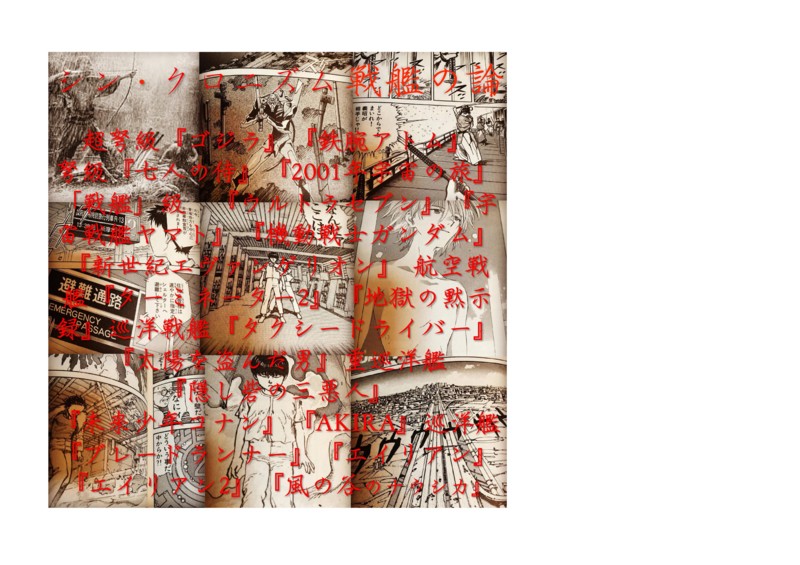 シン・クロニズム戦艦の論
超弩級『ゴジラ』 『鉄腕アトム』
弩級『七人の侍』 『2001年宇宙の旅』
「戦艦」級 『ウルトラセブン』 『宇
宙戦艦ヤマト』 『機動戦士ガンダム』
『新世紀エヴァンゲリオン』 航空戦
艦『ターミネーター2』 『地獄の黙示
録』巡洋戦艦『タクシードライバー』
『太陽を盗んだ男』重巡洋艦
『隠し砦の三悪人』
『未来少年コナン』 『AKIRA』巡洋艦
『ブレードランナー』 『エイリアン』
『エイリアン2』 『風の谷のナウシカ』
避難通路
EMERGENCY
PASSAGE